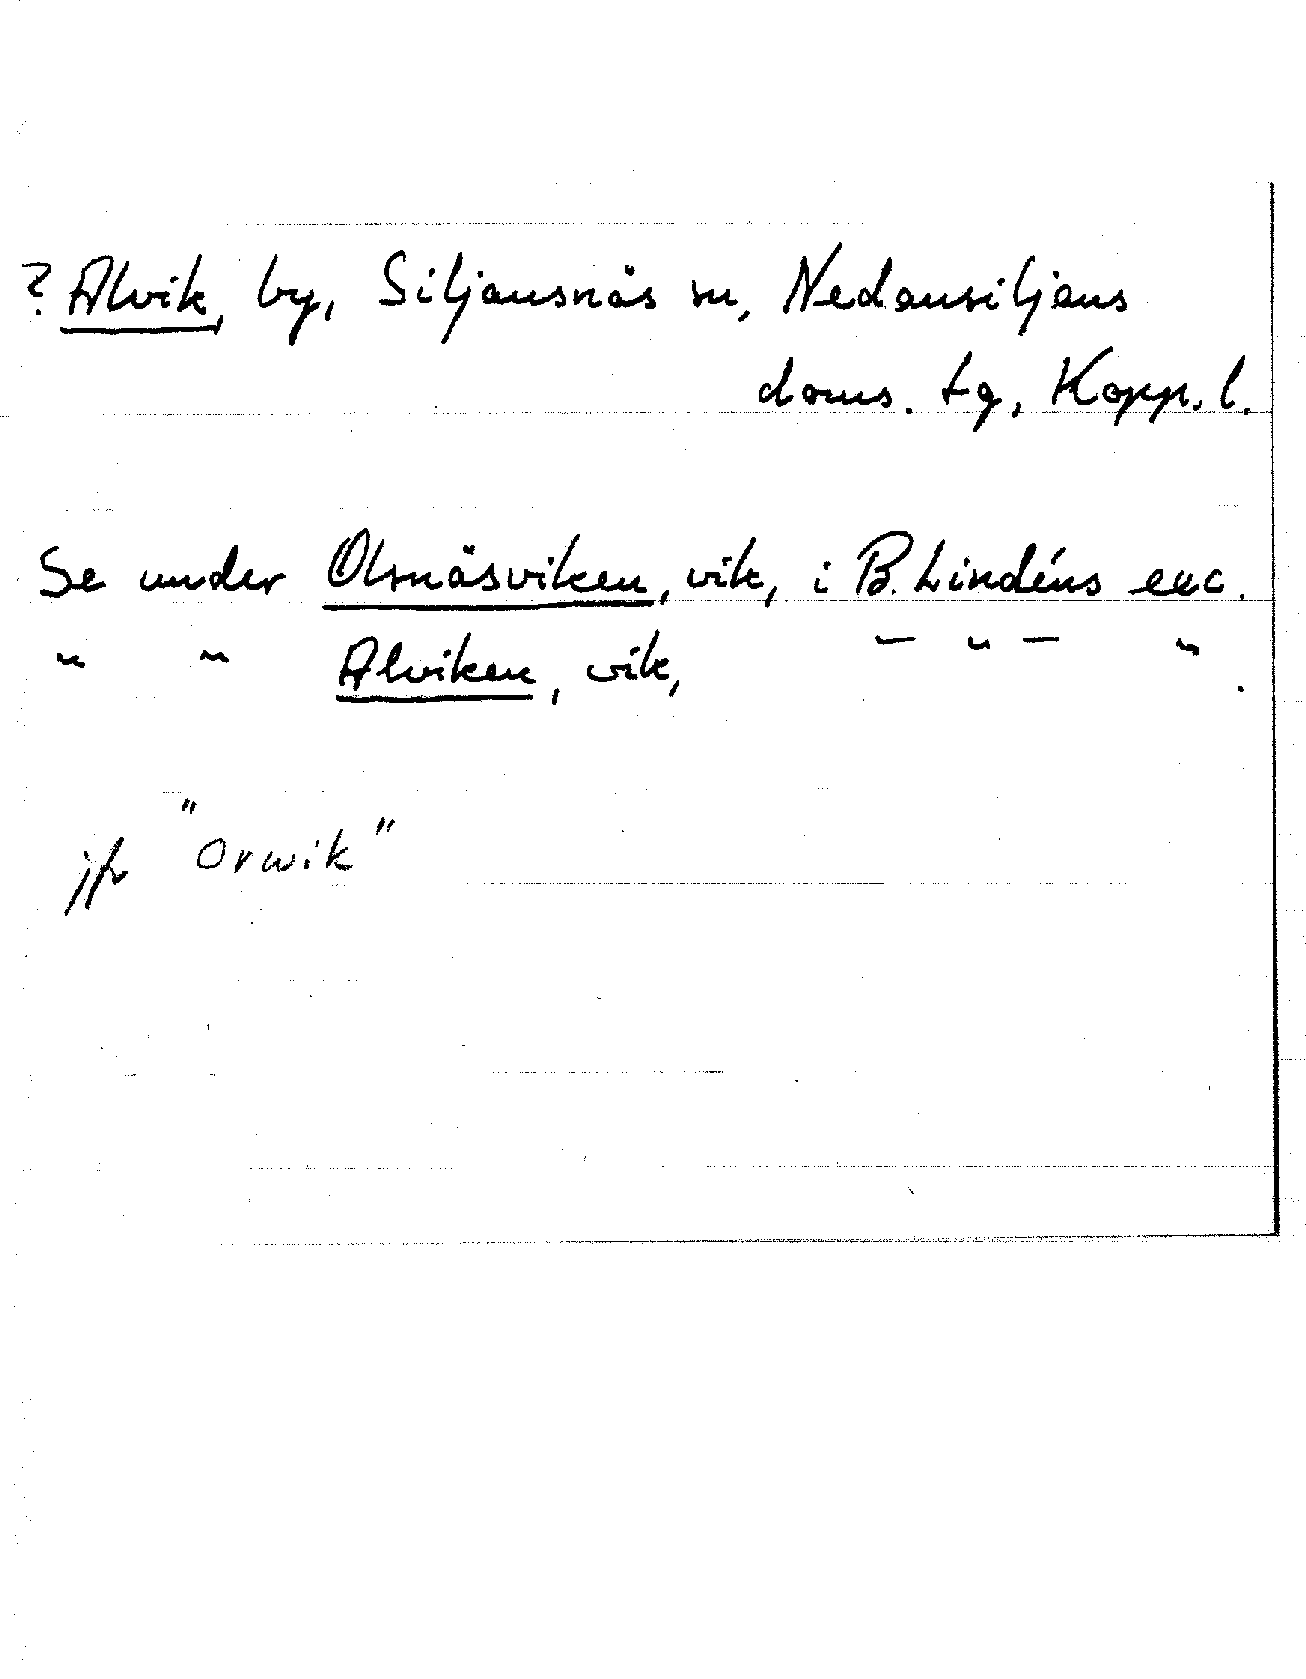 ? Alvik, by, Siljansnäs sn, Nedansiljans
doms. tg, Kopp. l.
Se under Olsnäsviken, vik, i B. Lindéns exc.
" " Alviken, vik, — " — " .
jfr "Orwik"